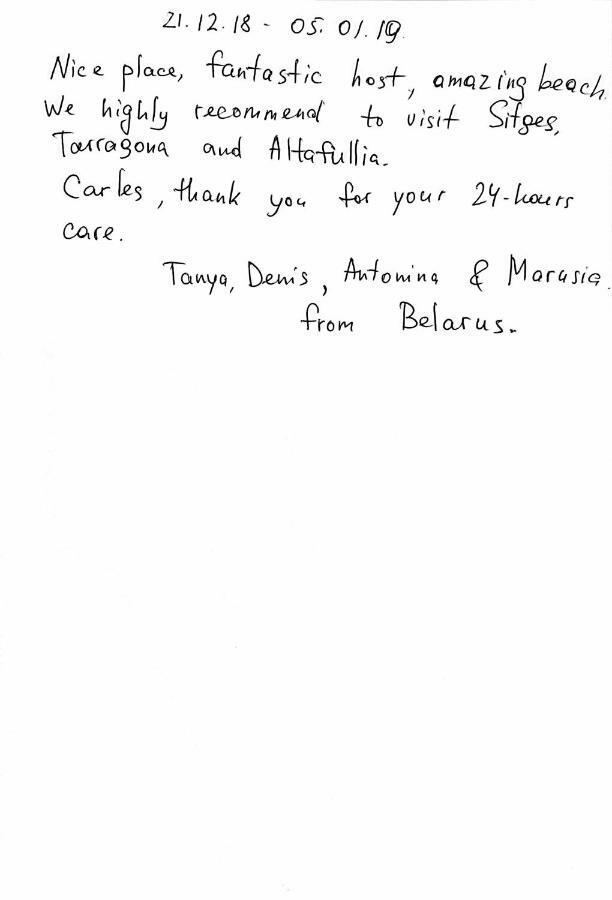 21.12.18 - 05.01.19.
Nice place, fantastic host, amazing beach.
We highly recommend to visit Sitges,
Tarragona and Altafullia.
Carles, thank you for your 24-hours
care.
Tanya, Denis, Antonina & Marusia.
from Belarus.